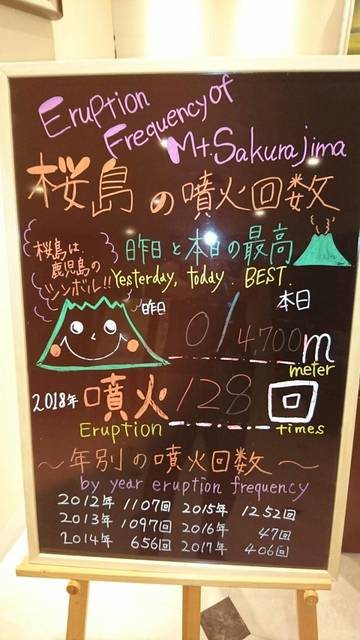 Eruption
Frequency of
Mt. Sakurajima
桜島の噴火回数
昨日と本日の最高
桜島は
鹿児島の
シンボル!!
Yesterday, today. BEST.
昨日 本日
0/4,700m
meter
2018年 噴火 128 回
Eruption times
〜年別の噴火回数〜
by year eruption frequency
2012年 1107回 2015年 1252回
2013年 1097回 2016年 47回
2014年 656回 2017年 406回